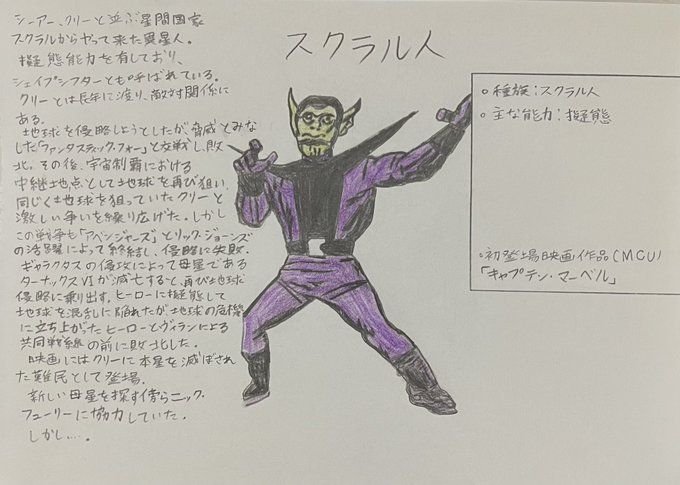 スクラル人
シーアー、クリーと並ぶ星間国家
スクラルからやって来た異星人。
擬態能力を有しており、
シェイプシフターとも呼ばれている。
クリーとは長年に渡り、敵対関係に
ある。
地球を侵略しようとしたが脅威とみな
した「ファンタスティック・フォー」と交戦し、敗
北。その後、宇宙制覇における
中継地点として地球を再び狙い、
同じく地球を狙っていたクリーと
激しい争いを繰り広げた。しかし
この戦争も「アベンジャーズ」とリック・ジョーンズ
の活躍によって終結し、侵略に失敗。
ギャラクタスの侵攻によって母星である
ターナックスⅥが滅亡すると、再び地球
侵略に乗り出す。ヒーローに擬態して
地球を混乱に陥れたが地球の危機
に立ち上がったヒーローとヴィランによる
共同戦線の前に敗北した。
映画にはクリーに本星を滅ぼされ
た難民として登場。
新しい母星を探す傍らニック・
フューリーに協力していた。
しかし…。
○種族:スクラル人
○主な能力:擬態
○初登場映画作品(MCU)
「キャプテン・マーベル」